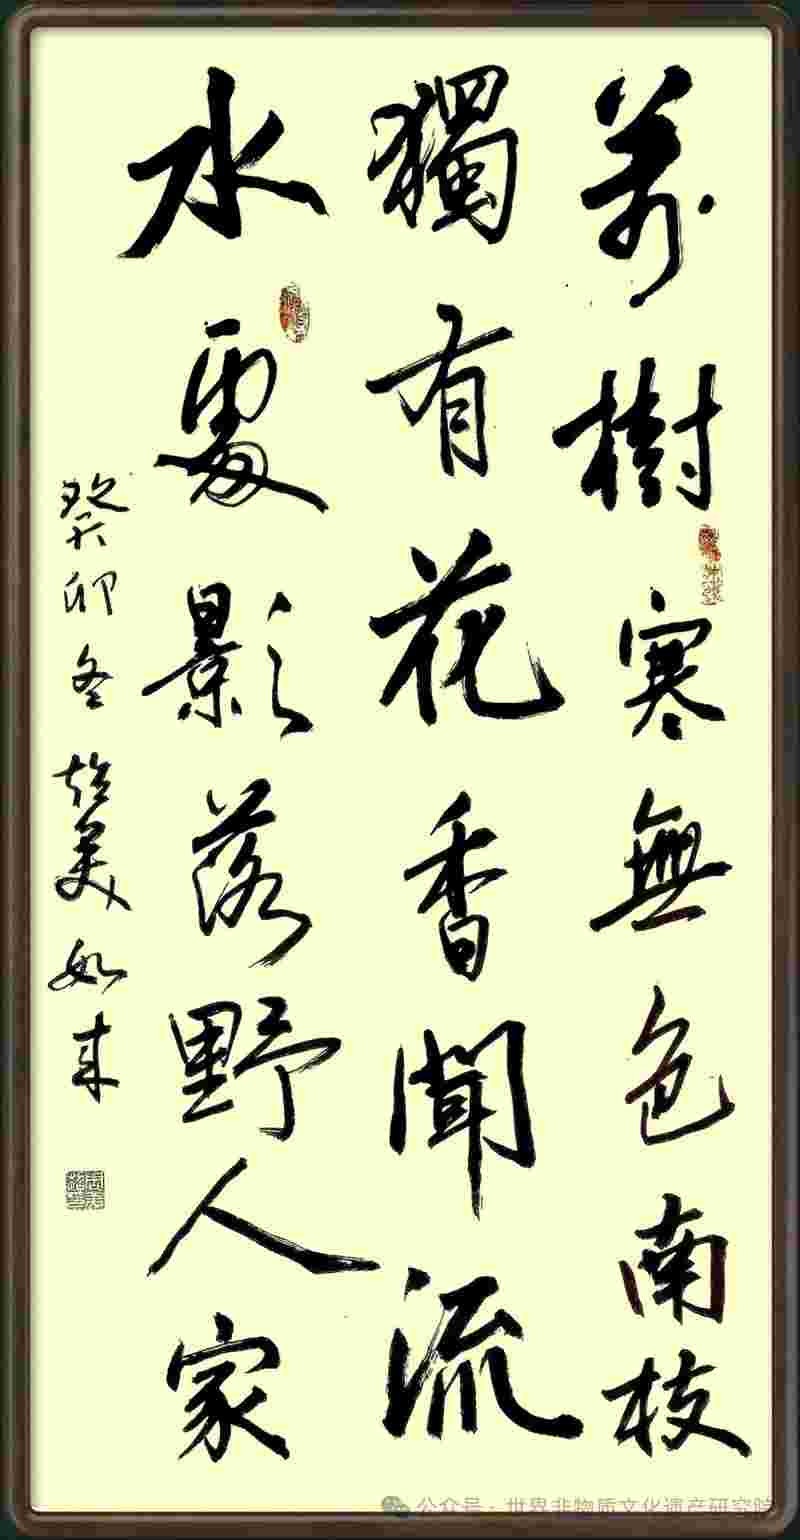 萬樹寒無色南枝
獨有花香聞流
水處影落野人家
癸卯冬 赵美如来
公众号·世界非物质文化遗产研究院